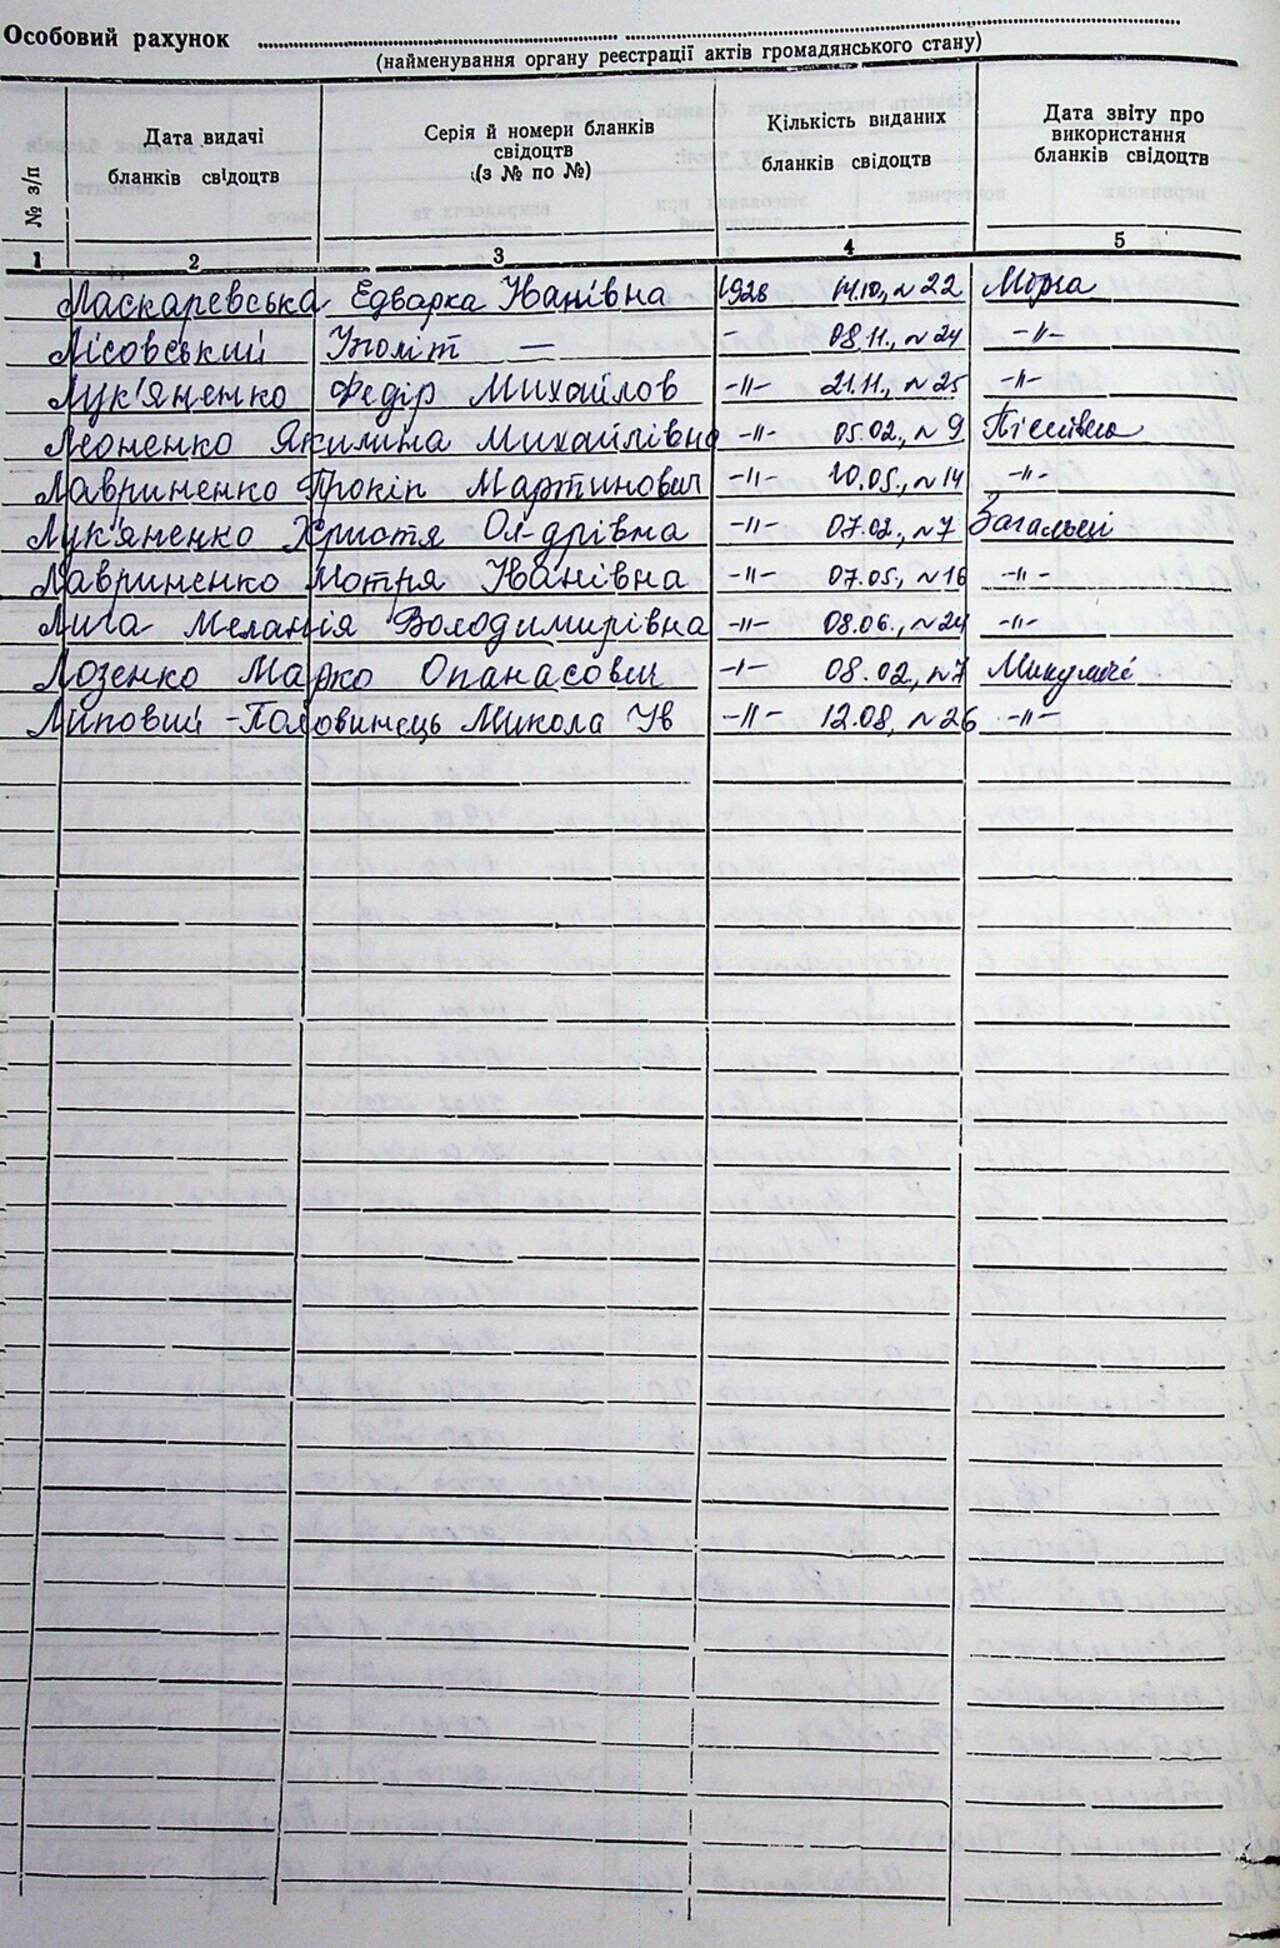 Особовий рахунок
(найменування органу реєстрації актів громадянського стану)
№ з/п
Дата видачі
бланків свідоцтв
Серія й номери бланків
свідоцтв
(з № по №)
Кількість виданих
бланків свідоцтв
Дата звіту про
використання
бланків свідоцтв
1 2 3 4 5
Ласкаревська Едварка Іванівна 1928 14.10, №22 Морга
Лісовський Іполіт — - 08.11., №24 -"-
Лук'яненко Федір Михайлов -"- 21.11., №25 -"-
Леоненко Якилина Михайлівна -"- 05.02., №9
Лавриненко Прокіп Мартинович -"- 10.05., №14 -"-
Лук'яненко Христя Ол-дрівна -"- 07.02., №7 Загальці
Лавриненко Мотря Іванівна -"- 07.05., №16 -"-
Лига Меланія Володимирівна -"- 08.06., №24 -"-
Лозенко Марко Опанасович -"- 08.02, №7 Микуличі
Липовий-Половинець Микола Ів -"- 12.08, №26 -"-